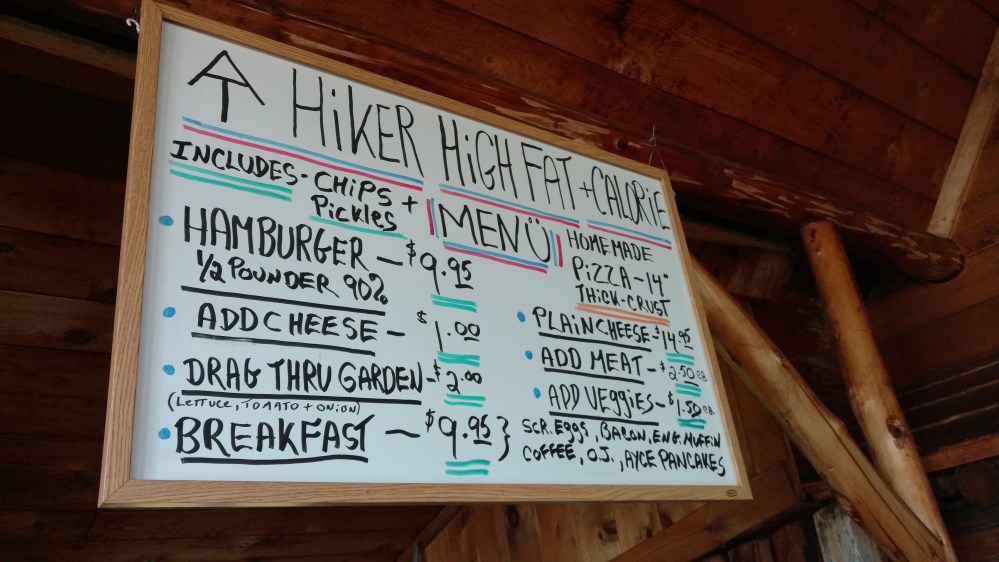 AT HiKER HiGH FAT + CALORiE
MENÜ
INCLUDES - CHiPS +
Pickles
HAMBURGER — $9.95
1/2 POUNDER 90%
ADD CHEESE — $1.00
DRAG THRU GARDEN - $2.00
(LETTUCE, TOMATO + ONiON)
BREAKFAST — $9.95 }
SCR. EGGS, BACON, ENG. MUFFIN
COFFEE, O.J., AYCE PANCAKES
HOMEMADE
PiZZA - 14"
THiCK-CRUST
PLAIN CHEESE - $14.95
ADD MEAT - $2.50 EA.
ADD VEGGiES - $1.50 EA.